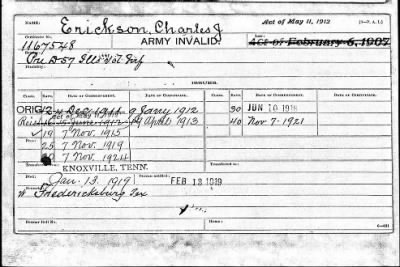 Name, Erickson, Charles J.
Act of May 11, 1912
Certificate No.
1167548
ARMY INVALID.
Act of February 6, 1907
Pvt D-57 Ills Vol Inf
Disability:
CLASS. RATE. DATE OF COMMENCEMENT. DATE OF CERTIFICATE. CLASS. RATE. DATE OF COMMENCEMENT. DATE OF CERTIFICATE.
ORIG 12 Dec 1911 9 Jany 1912
30 JUN 10 1918
Act of May 11
June 1912 April 1913
40 Nov 7-1921
19 7 Nov. 1915
25 7 Nov. 1919
7 Nov. 1924
KNOXVILLE, TENN.
Died:
Jan. 13, 1919
FEB 13 1919
W Fredericksburg Tex
Bureau